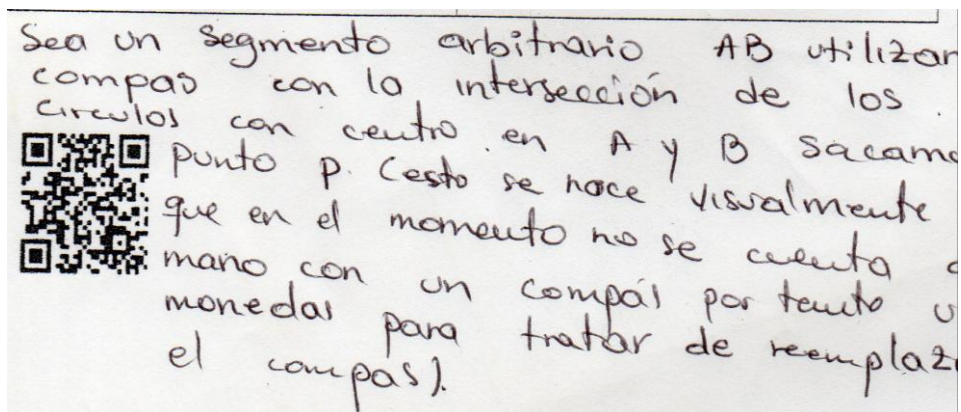 Sea un segmento arbitrario AB utilizan
compas con la intersección de los
circulos con centro en A y B sacamo
punto P. (esto se hace visualmente
que en el momento no se cuenta a
mano con un compás por tanto u
monedas para tratar de reemplaza
el compas).